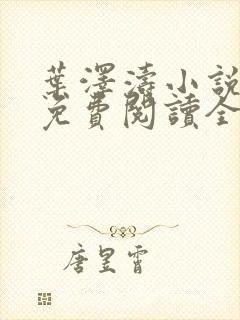 葉澤濤小說
免費閱讀全
唐昱霄